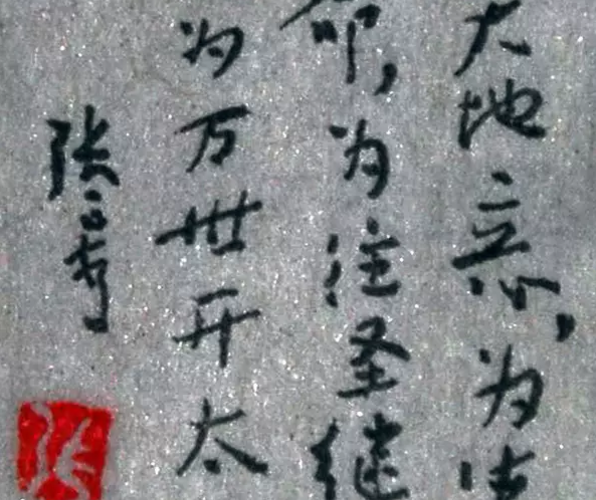 天地立心,为
命,为往圣继
为万世开太
张